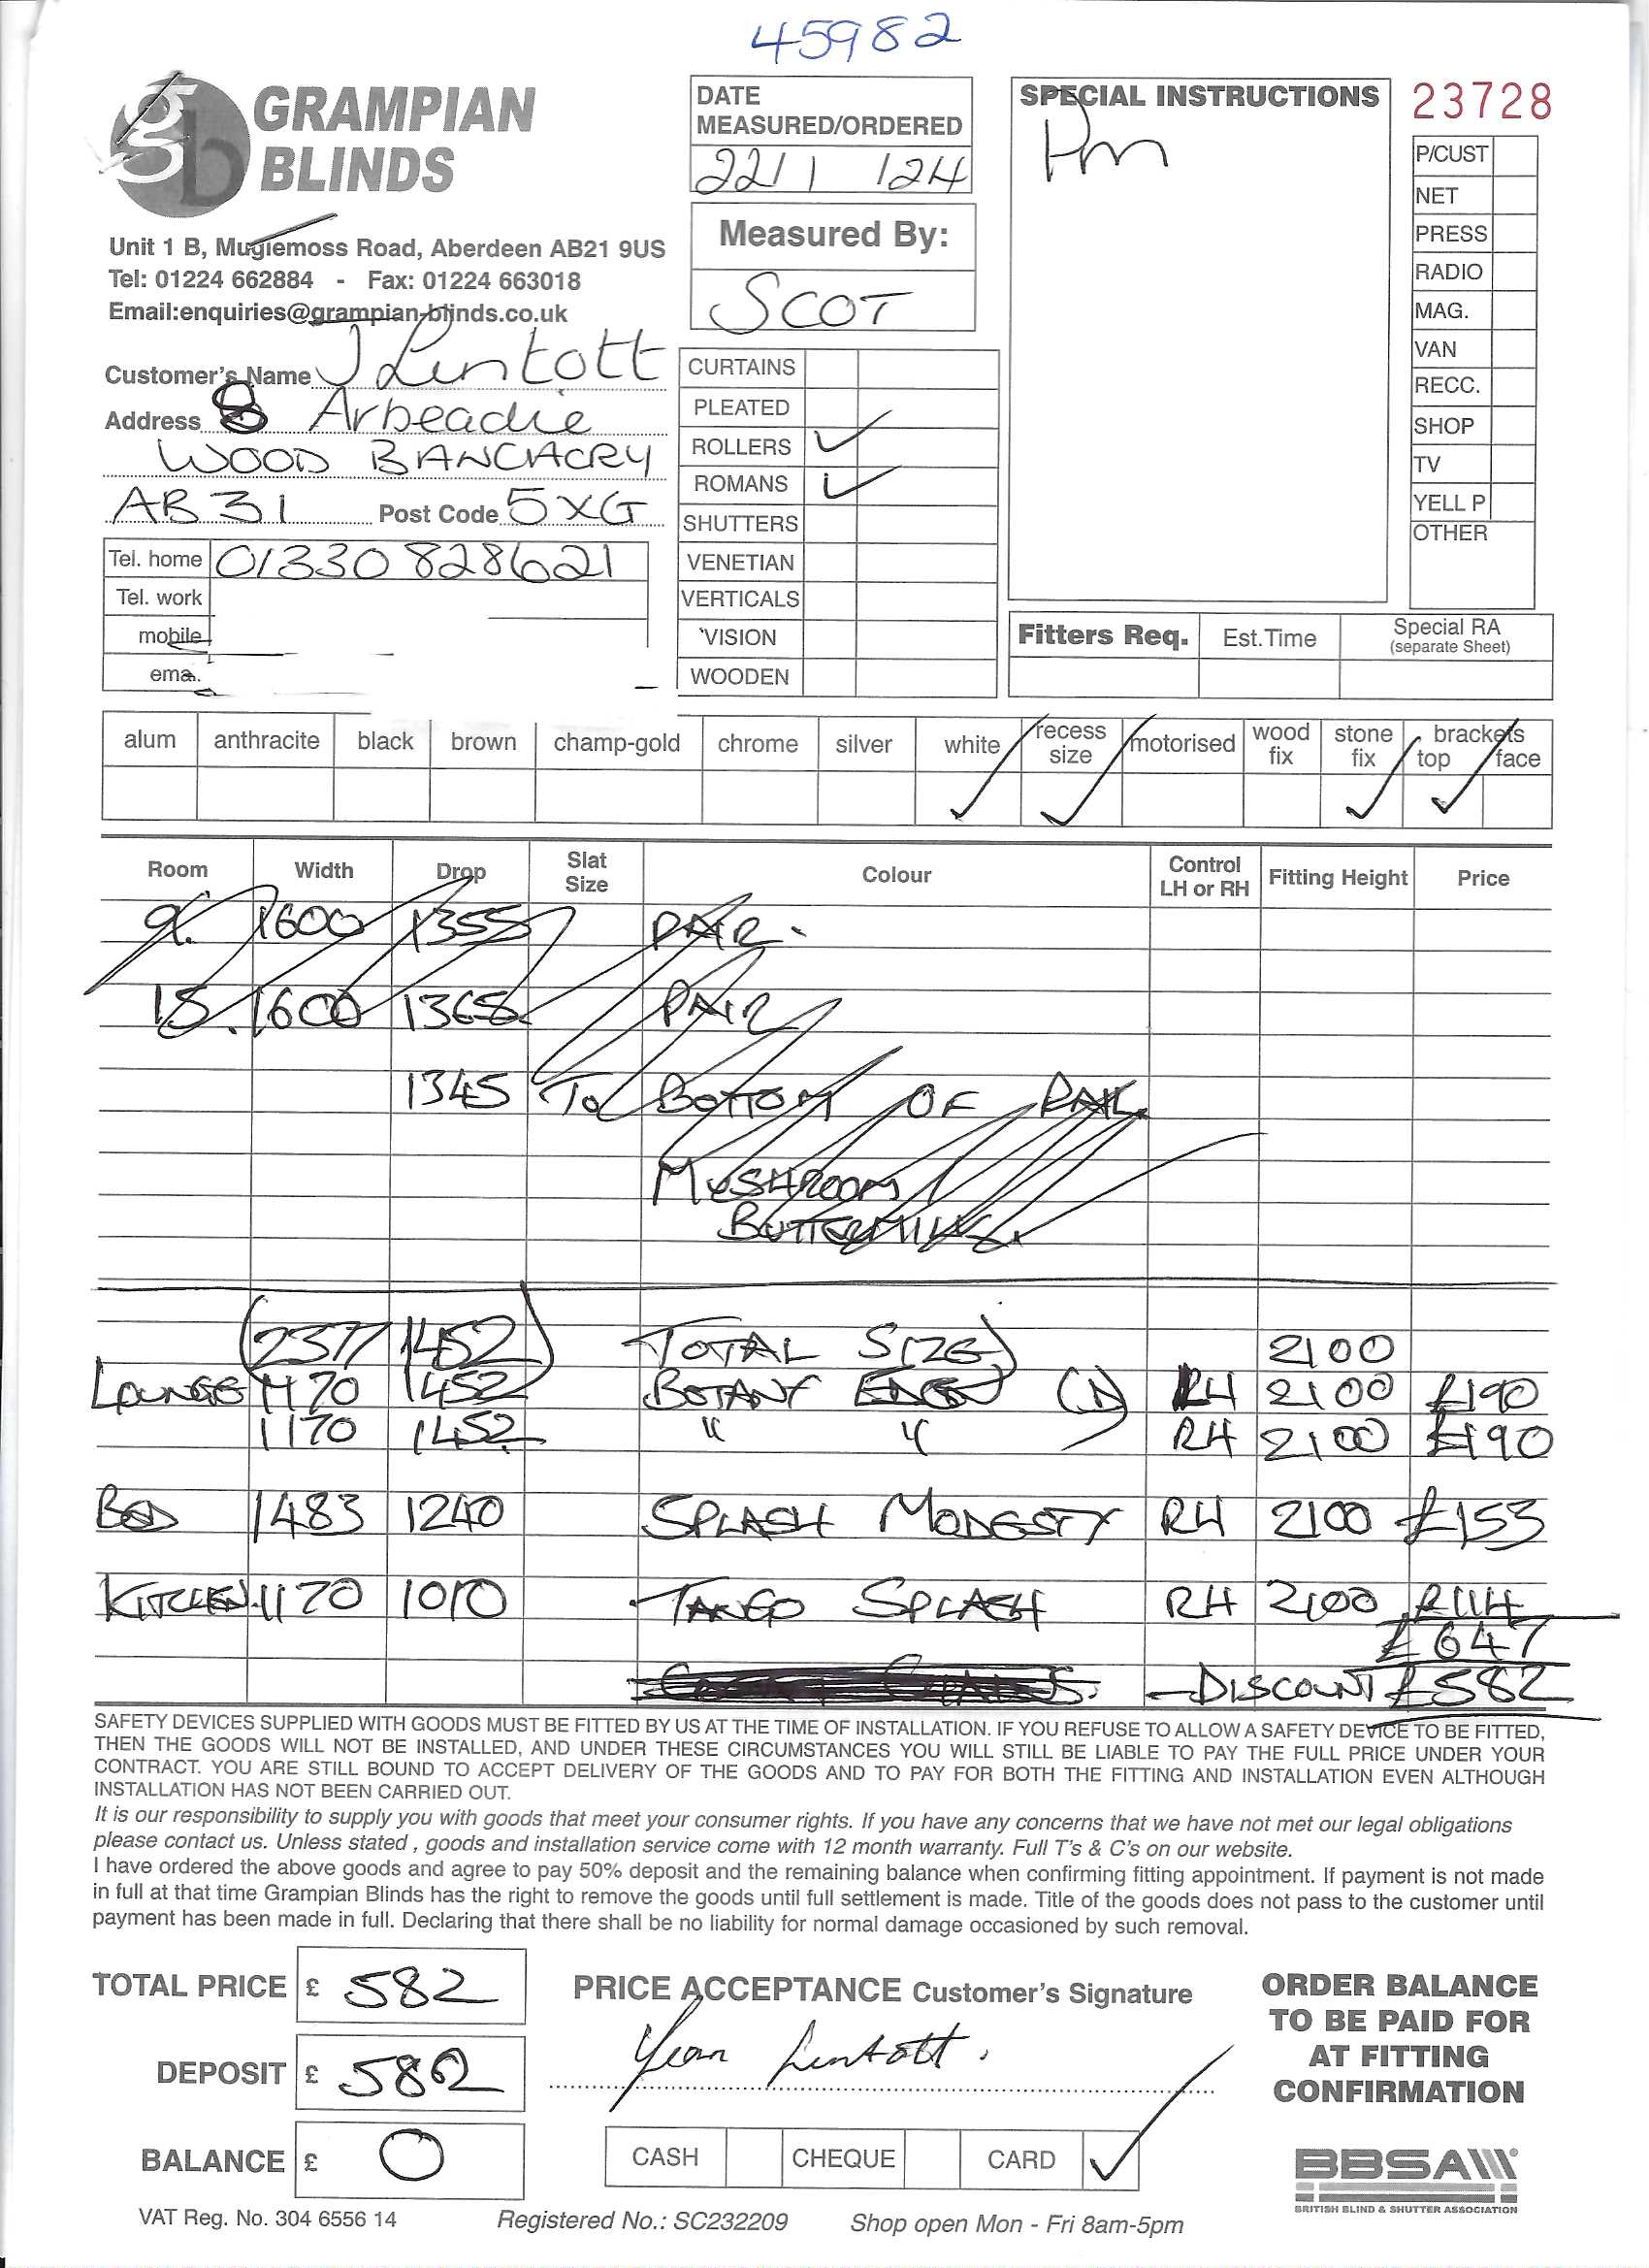 45982
GRAMPIAN
BLINDS
Unit 1 B, Mugiemoss Road, Aberdeen AB21 9US
Tel: 01224 662884 - Fax: 01224 663018
Email:enquiries@grampian-blinds.co.uk
DATE
MEASURED/ORDERED
22/1/24
Measured By:
SCOT
SPECIAL INSTRUCTIONS
Pm
23728
P/CUST
NET
PRESS
RADIO
MAG.
VAN
RECC.
SHOP
TV
YELL P
OTHER
Customer's Name J Lintott
Address 8 Arbeadie
WOOD BANCHORY
AB31 Post Code 5XG
Tel. home 01330 828621
Tel. work
mobile
CURTAINS
PLEATED
ROLLERS ✓
ROMANS ✓
SHUTTERS
VENETIAN
VERTICALS
VISION
WOODEN
Fitters Req. Est.Time Special RA
(separate Sheet)
alum anthracite black brown champ-gold chrome silver white recess size motorised wood fix stone fix brackets top face
✓ ✓ ✓ ✓
Room Width Drop Slat Size Colour Control LH or RH Fitting Height Price
1600 1355 PAIR.
15. 1600 1365 PAIR
1345 To BOTTOM OF RAIL
MUSHROOM
BUTTERMILK.
(2377 1452) TOTAL SIZE) 2100
LOUNGE 1170 1452 BOTANY RH 2100 £190
1170 1452 " " RH 2100 £190
BED 1483 1240 SPLASH MODESTY RH 2100 £153
KITCHEN 1170 1010 TANGO SPLASH RH 2100 £114
£647
- DISCOUNT £582
SAFETY DEVICES SUPPLIED WITH GOODS MUST BE FITTED BY US AT THE TIME OF INSTALLATION. IF YOU REFUSE TO ALLOW A SAFETY DEVICE TO BE FITTED,
THEN THE GOODS WILL NOT BE INSTALLED, AND UNDER THESE CIRCUMSTANCES YOU WILL STILL BE LIABLE TO PAY THE FULL PRICE UNDER YOUR
CONTRACT. YOU ARE STILL BOUND TO ACCEPT DELIVERY OF THE GOODS AND TO PAY FOR BOTH THE FITTING AND INSTALLATION EVEN ALTHOUGH
INSTALLATION HAS NOT BEEN CARRIED OUT.
It is our responsibility to supply you with goods that meet your consumer rights. If you have any concerns that we have not met our legal obligations
please contact us. Unless stated , goods and installation service come with 12 month warranty. Full T's & C's on our website.
I have ordered the above goods and agree to pay 50% deposit and the remaining balance when confirming fitting appointment. If payment is not made
in full at that time Grampian Blinds has the right to remove the goods until full settlement is made. Title of the goods does not pass to the customer until
payment has been made in full. Declaring that there shall be no liability for normal damage occasioned by such removal.
TOTAL PRICE £ 582
DEPOSIT £ 582
BALANCE £ 0
PRICE ACCEPTANCE Customer's Signature
Jean Lintott.
CASH CHEQUE CARD ✓
ORDER BALANCE
TO BE PAID FOR
AT FITTING
CONFIRMATION
BBSA
BRITISH BLIND & SHUTTER ASSOCIATION
VAT Reg. No. 304 6556 14 Registered No.: SC232209 Shop open Mon - Fri 8am-5pm